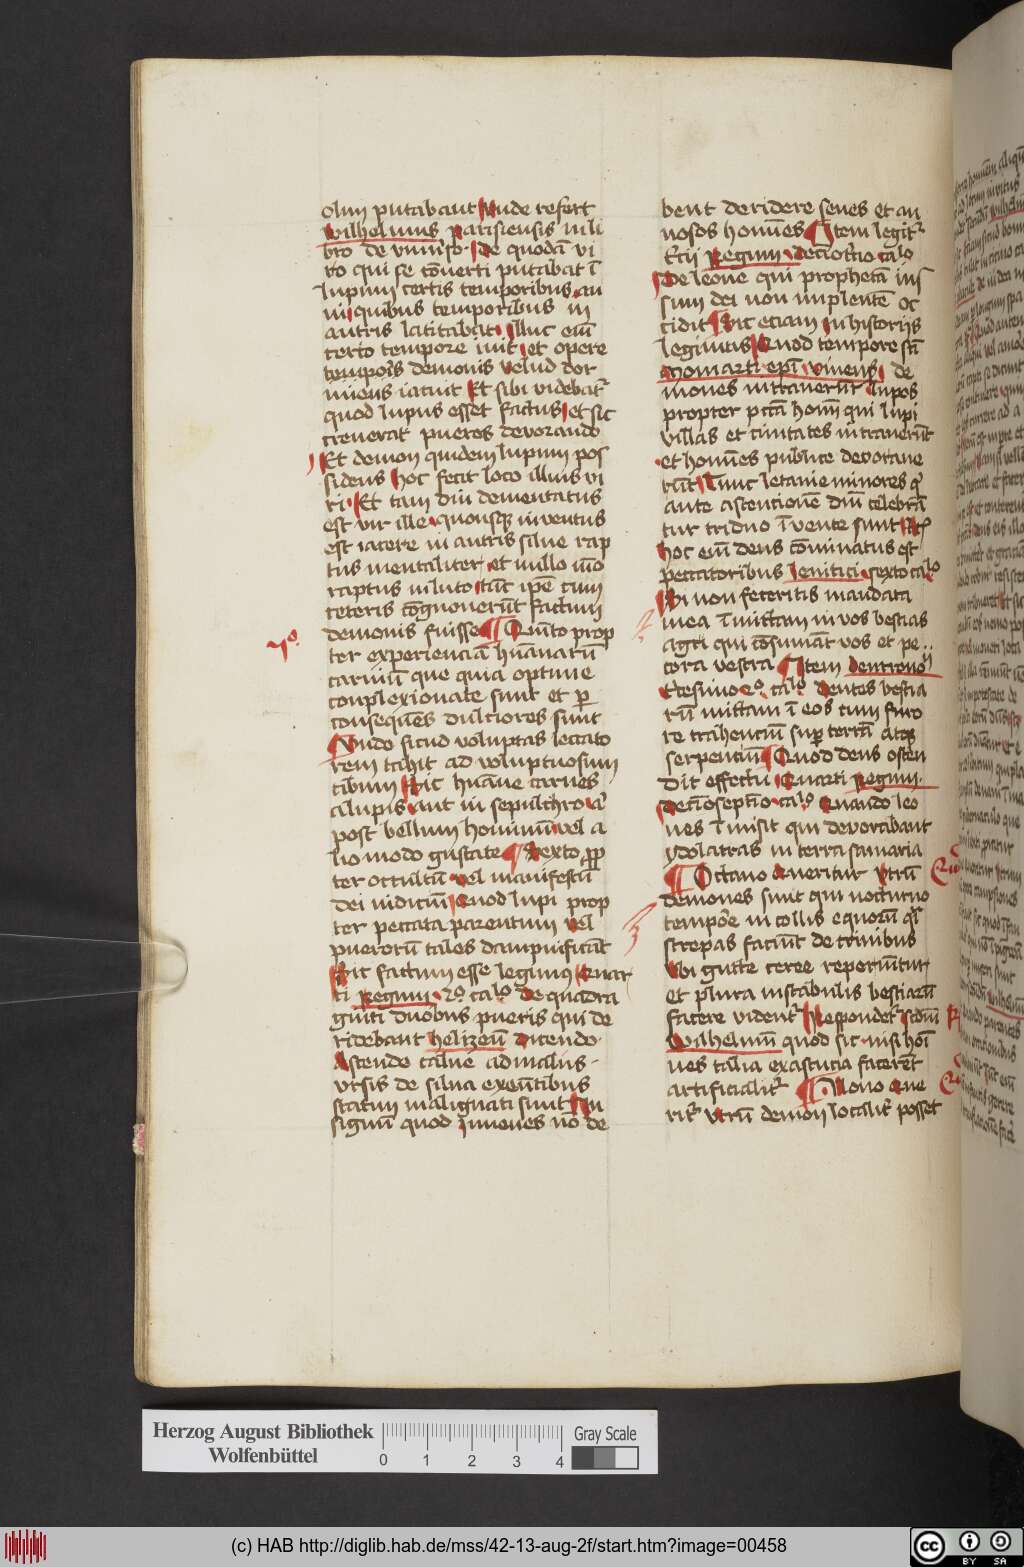 olim putabant Unde refert
wilhelmus parisiensis in li
bro de universo de quodā vi
ro qui se cōverti putabat ī
lupum certis temporibus an
ni quibus temporibus in
antris latitabat illuc eīn
certo tempore ivit et opere
demonis velud dor
miens iacuit Et sibi videbatr
quod lupus esset factus et sic
creverat pueros devorando
Et demon quidem lupum pos
sidens hoc fecit loco illius vi
ri Et tam diu dementatus
est vir ille quousque inventus
est iacere in antris silve rap
tus mentaliter et nullo mō
raptus in luto tūc ipē cum
ceteris cōgnoverūt factum
demonis fuisse Quīto prop
7o
ter experienciā hūanarū
carniū que quia optime
complexionate sunt et per
consequēs dulciores sunt
Unde sicud voluptas leccato
rem trahit ad voluptuosum
cibum Sic hūane carnes
a lupis aut in sepulchro aut
post bellum hominū vel a
lio modo gustate Sexto prop
ter occultū vel manifestū
dei iudiciū Quod lupi prop
ter peccata parentum vel
puerorū tales dampnificāt
Sic factum esse legimus Quar
ti Regum 2o calo De quadra
ginti duobus pueris qui de
ridebant helizeū dicendo
Ascende calve ad malus
ursis de silva exeūtibus
statim malignati sunt In
signū quod iuvenes nō de
bent deridere senes et an
nosos homīes Item legitr
tercii Regum decīotercio calo
De leone qui prophetā ius
sum dei non implentē oc
cidit Sic eciam in historiis
legimus Quod tempore sancti
momarti epī viniens de
mones intraverūt lupos
propter pctā homī qui lupi
villas et civitates intraverūt
et homīes publice devorave
rūt Tunc letanie minores que
ante ascentionē dnī celebrā
tur triduo īvente sunt Et
hoc eīn deus cōminatus est
peccatoribus levitici sexto calo
Si non feceritis mandata
mea īmittam in vos bestias
agri qui cōsumāt vos et pe
cora vestra Item deutronoī
tricesimo 2o calo dentes bestia
rū mittam ī eos cum furo
re trahenciū sup terrā atque
serpentiū Quod deus osten
dit effectū Quarti Regum
decīoseptīo calo Quando leo
nes īmisit qui devorabant
ydolatras in terra samaria
Octavo queritur utrū
demones sunt qui nocturno
tempore in collis equorū quasi
strepas faciūt de crinibus
Ubi gutte ceree reperiūtur
et plura in stabulis bestiarū
facere videntr Respondetr scdm
wilhelmū quod sic nisi homī
nes talia ex astucia facerēt
artificialitr Nono que
ritr utrū demon localitr posset
Herzog August Bibliothek
Wolfenbüttel
0 1 2 3 4
Gray Scale
(c) HAB http://diglib.hab.de/mss/42-13-aug-2f/start.htm?image=00458
cc BY SA